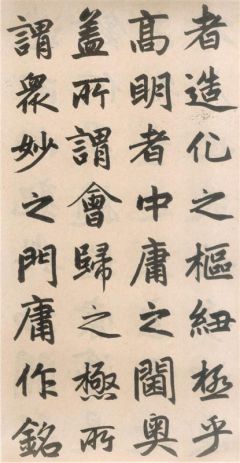 者造化之樞紐極乎
高明者中庸之閫奥
盖所謂會歸之極所
謂衆妙之門庸作銘